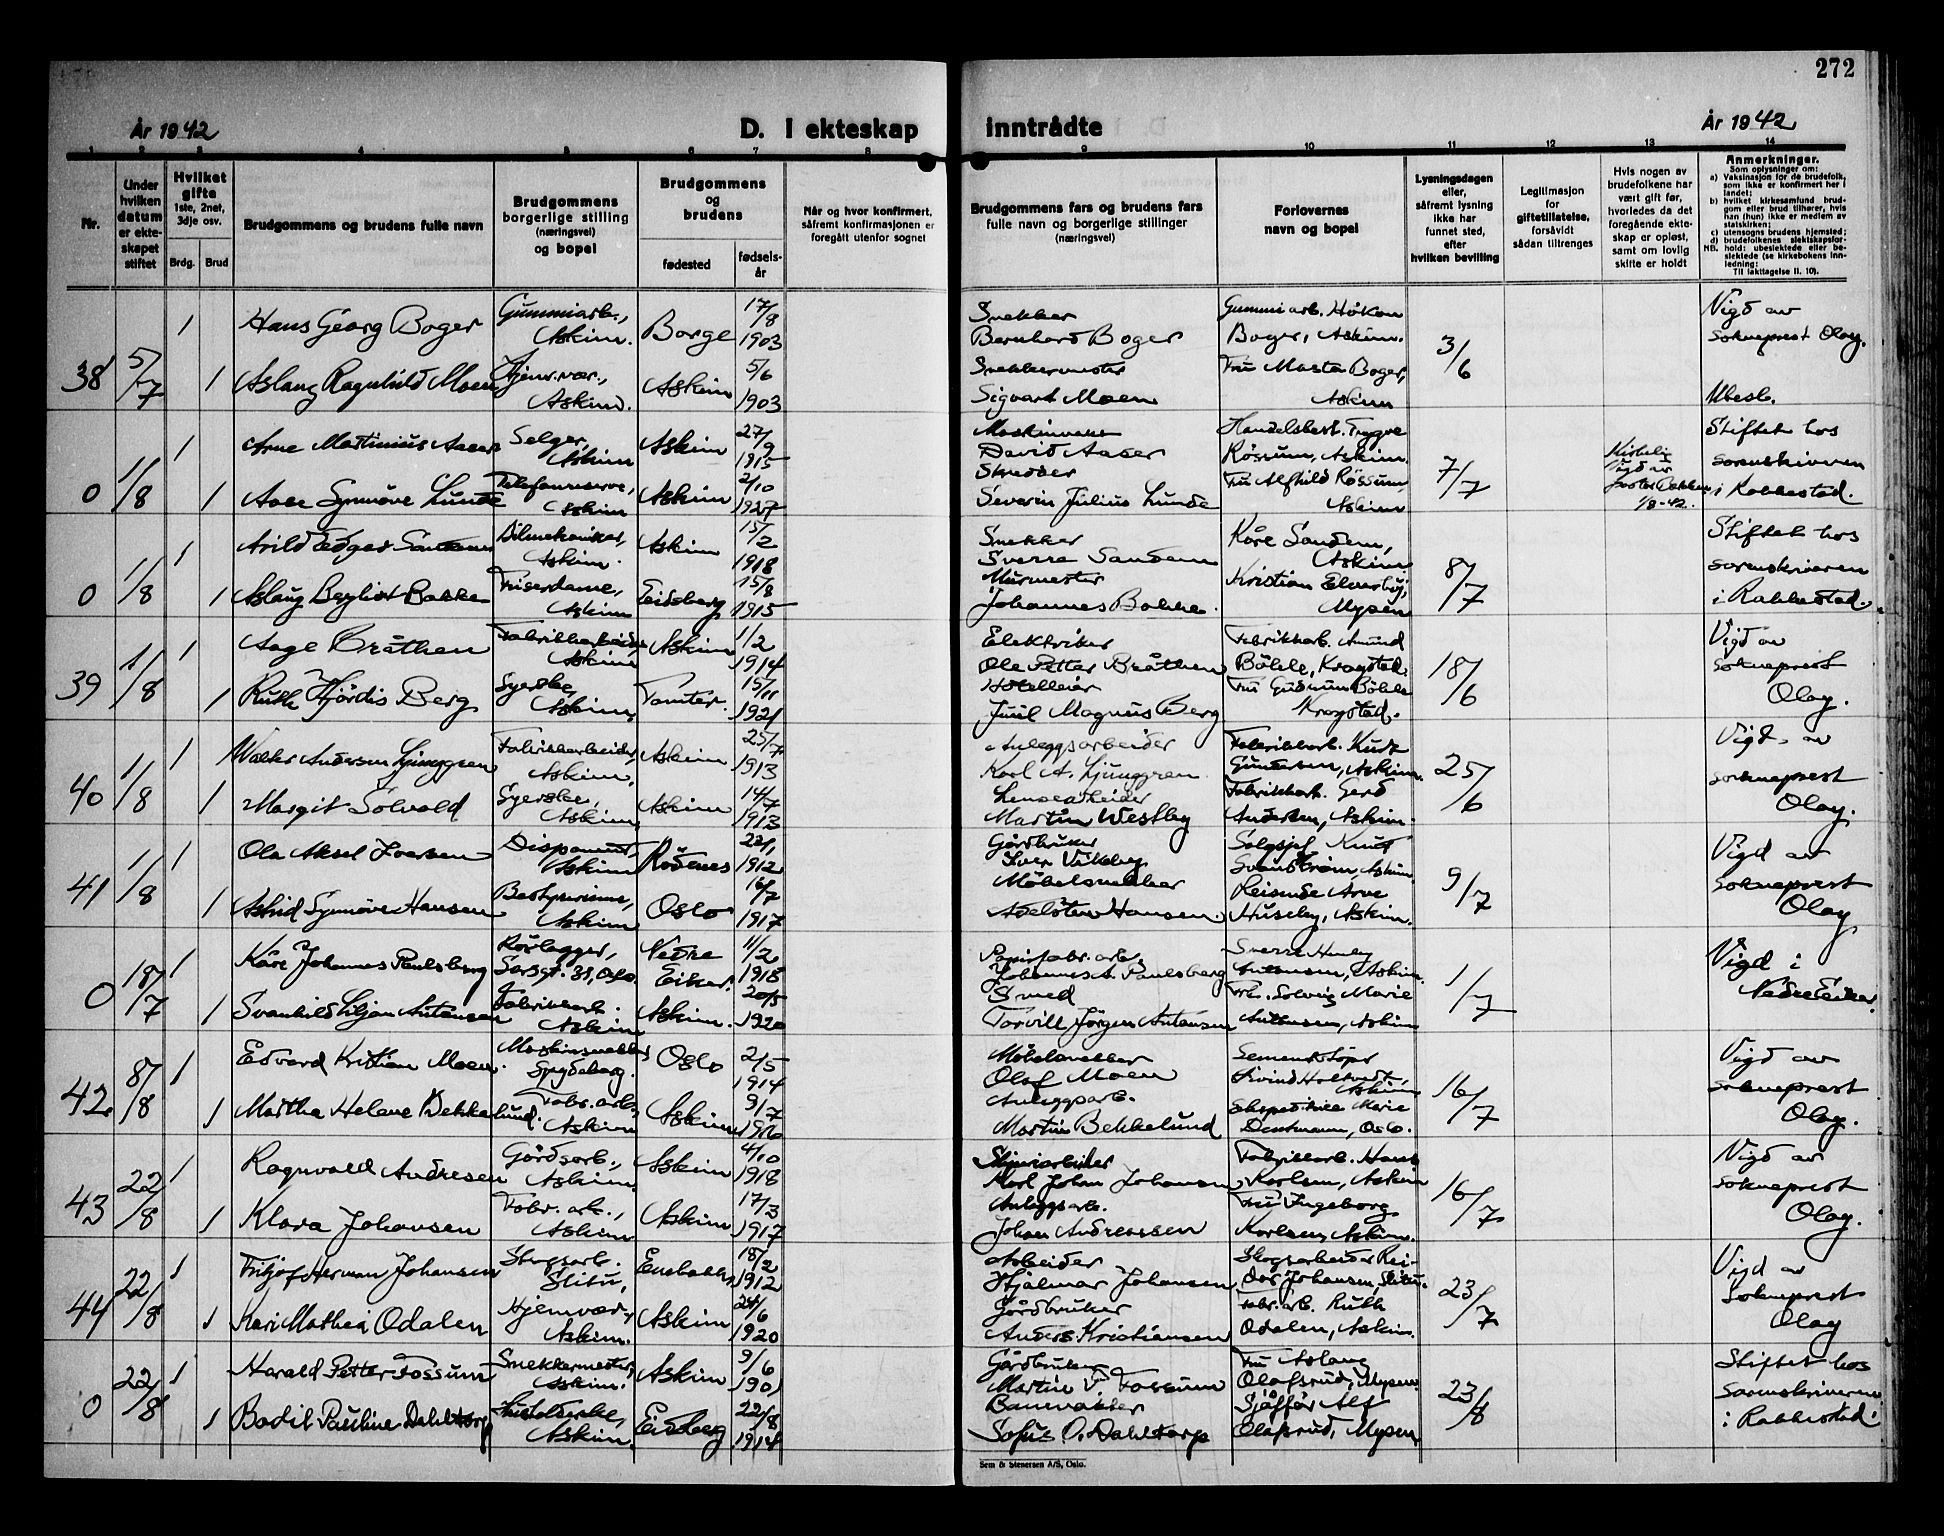 272
År 1942
D. I ekteskap inntrådte
År 1942
1 2 3 4 5 6 7 8 9 10 11 12 13 14
Nr.
Under hvilken datum er ekteskapet stiftet
Hvilket gifte 1ste, 2net, 3dje osv.
Brdg. Brud
Brudgommens og brudens fulle navn
Brudgommens borgerlige stilling (næringsvei) og bopel
Brudgommens og brudens
fødested
fødselsår
Når og hvor konfirmert, såfremt konfirmasjonen er foregått utenfor sognet
Brudgommens fars og brudens fars fulle navn og borgerlige stillinger (næringsvei)
Forlovernes navn og bopel
Lysningsdagen eller, såfremt lysning ikke har funnet sted, efter hvilken bevilling
Legitimasjon for giftetillatelse, forsåvidt sådan tiltrenges
Hvis nogen av brudefolkene har vært gift før, hvorledes da det foregående ekteskap er opløst, samt om lovlig skifte er holdt
Anmerkninger.
Som oplysninger om:
a) Vaksinasjon for de brudefolk, som ikke er konfirmert her i landet;
b) hvilket kirkesamfund brudgom eller brud tilhører, hvis han (hun) ikke er medlem av statskirken;
c) utensogns brudens hjemsted;
d) brudefolkenes slektskapsforhold: ubeslektede eller beslektede (se kirkebokens innledning:
NB. Til iakttagelse II. 10).
38 5/7
1 Hans Georg Boger Gummiarb., Askim. Borge 17/8 1903 Snekker Bernhard Boger Gummiarb. Håkon Boger, Askim. 3/6 Vigd av sokneprest Olay.
1 Aslaug Ragnhild Moen Hjemv.vær., Askim. Askim 5/6 1903 Snekkermester Sigvart Moen Fru Marta Boger, Askim Ubesl.
0 1/8
1 Arne Martinius Aaser Selger, Askim Askim 27/9 1915 David Aaser Handelsbest. Trygve Røssum, Askim. 7/7 Vigd 1/8-42. Stiftet hos sorenskriveren i Rakkestad.
1 Aase Synnøve Lunde Askim Askim 2/10 Severin Julius Lunde Fru Alfhild Røssum, Askim
0 1/8
1 Arild Edgar Bilmekaniker, Askim. Askim 15/2 1918 Snekker Sverre Sandem Kåre Sandem, Askim 8/7 Stiftet hos sorenskriveren i Rakkestad.
1 Aslaug Bergliot Bakke Friserdame, Askim Eidsberg 15/8 1915 Murmester Johannes Bakke. Kristian Mysen
39 1/8
1 Aage Bråthen Fabrikkarbeider Askim Askim 1/2 1914 Elektriker Ole Petter Bråthen Fabrikkarb. Amund Bøhle, Kragstad. 18/6 Vigd av sokneprest Olay.
1 Ruth Hjördis Berg Syerske, Askim Tomter. 15/11 1921 Hotelleier Juul Magnus Berg Fru Gudrun Bøhle Kragstad.
40 1/8
1 Walter Andersen Ljunggren Fabrikkarbeider, Askim, Askim 25/7 1913 Anleggsarbeider Karl A. Ljunggren Fabrikkarb. Gundersen, Askim. 25/6 Vigd. av sokneprest Olay.
1 Margit Solvold Syerske, Askim, Askim 14/7 1913 Martin Westby Fabrikkarb. Gerd Andersen, Askim.
41 1/8
1 Ola Aksel Iversen Disponent, Askim Rødenes 1912 Gårdbruker Iver Vikeby Salgsjef Knut Askim 9/7 Vigd av sokneprest Olay
1 Astrid Synnøve Hansen Bestyrerinne, Askim Oslo 1917 Møbelsnekker Adelsten Hansen. Reisende Arve Huseby, Askim.
0 18/7
1 Kåre Johannes Paulsberg Rørlegger, Oslo. Nedre Eiker. 11/2 1918 Papirfabr.arb. Johannes A. Paulsberg Sverre Antensen, Askim. 1/7 Vigd i Nedre Eiker
1 Svanhild Liljan Antensen Fabrikkarb. Askim Askim. 20/5 1920 Smed Torvill Jørgen Antensen Frk. Solveig Marie Antensen, Askim
42. 8/8
1 Edvard Kristian Moen. Spydeberg. Oslo 2/5 1914 Møbelsnekker Olaf Moen Eivind Holtvedt, Askim 16/7 Vigd av sokneprest Olay.
1 Martha Helene Bekkelund. Fabr.arb., Askim Askim 9/7 Anleggsarb. Martin Bekkelund Ekspeditrice Marie Oslo.
43 22/8
1 Ragnvald Andresen Gårdsarb., Askim. Askim 4/10 1918 Karl Johan Johansen Fabrikkarb. Hans Karlsen, Askim 16/7 Vigd av sokneprest Olay.
1 Klara Johansen Fabr. arb., Askim Askim 17/3 1917 Anleggsarb. Johan Andreassen Fru Ingeborg Karlsen, Askim.
44 22/8
1 Fritjof Herman Johansen Skogsarb. Slitu, Enebakk, 18/2 1912 Arbeider Hjalmar Johansen Skogsarbeider Reidar Johansen, Slitu. 23/7 Vigd av sokneprest Olay
1 Kari Mathea Odalen Hjemvær., Askim. Askim 24/6 1920 Gårdbruker Anders Kristiansen Fabr.arb. Ruth Odalen, Askim.
0 22/8
1 Harald Petter Fossum Snekkermester, Askim. Askim 9/6 1901 Gårdbruker Martin Fossum Fru Aslaug Olafsrud, Mysen 23/8 Stiftet hos sorenskriveren i Rakkestad
1 Bodil Pauline Dahltorp Askim. Eidsberg 22/8 1914 Banevokter Sofus O. Dahltorp Sjåfør Alf Olafsrud, Mysen
Sem & Stenersen A/S, Oslo.